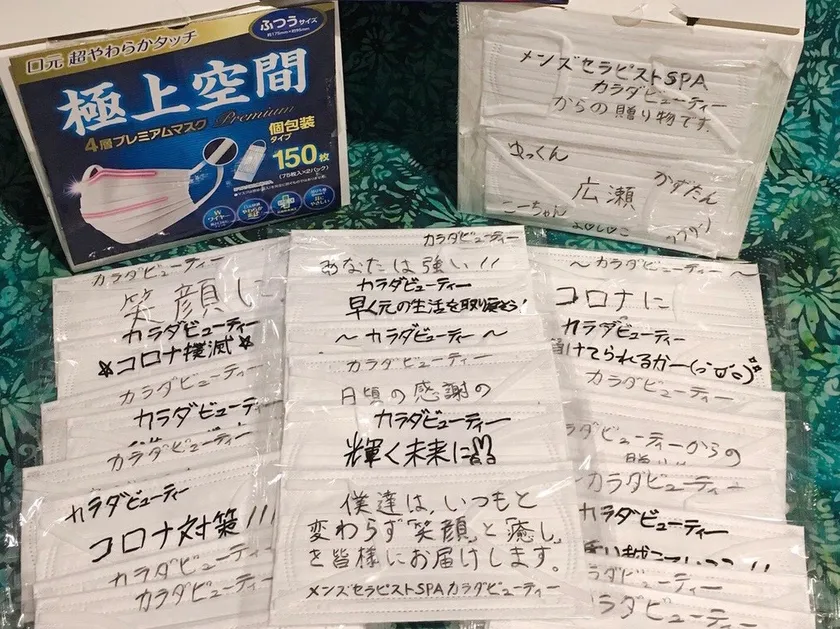 口元 超やわらかタッチ
ふつうサイズ
極上空間
4層プレミアムマスク Premium
個包装
タイプ
150枚
(75枚入×2パック)
メンズセラピストSPA
カラダビューティー
からの贈り物です。
ゆっくん
広瀬
かずたん
こーちゃん
カラダビューティー
笑顔に
カラダビューティー
☆コロナ撲滅☆
カラダビューティー
カラダビューティー
カラダビューティー
カラダビューティー
コロナ対策!!!
カラダビューティー
カラダビューティー
カラダビューティー
あなたは強い!!
カラダビューティー
早く元の生活を取り戻そう!
〜カラダビューティー〜
カラダビューティー
日頃の感謝の
カラダビューティー
輝く未来に
僕達は、いつもと
変わらず"笑顔"と"癒し"
を皆様にお届けします。
メンズセラピストSPAカラダビューティー
〜カラダビューティー〜
コロナに
カラダビューティー
負けてられるかー
カラダビューティー
カラダビューティーからの
カラダビューティー
カラダビューティー
カラダビューティー
カラダビューティー